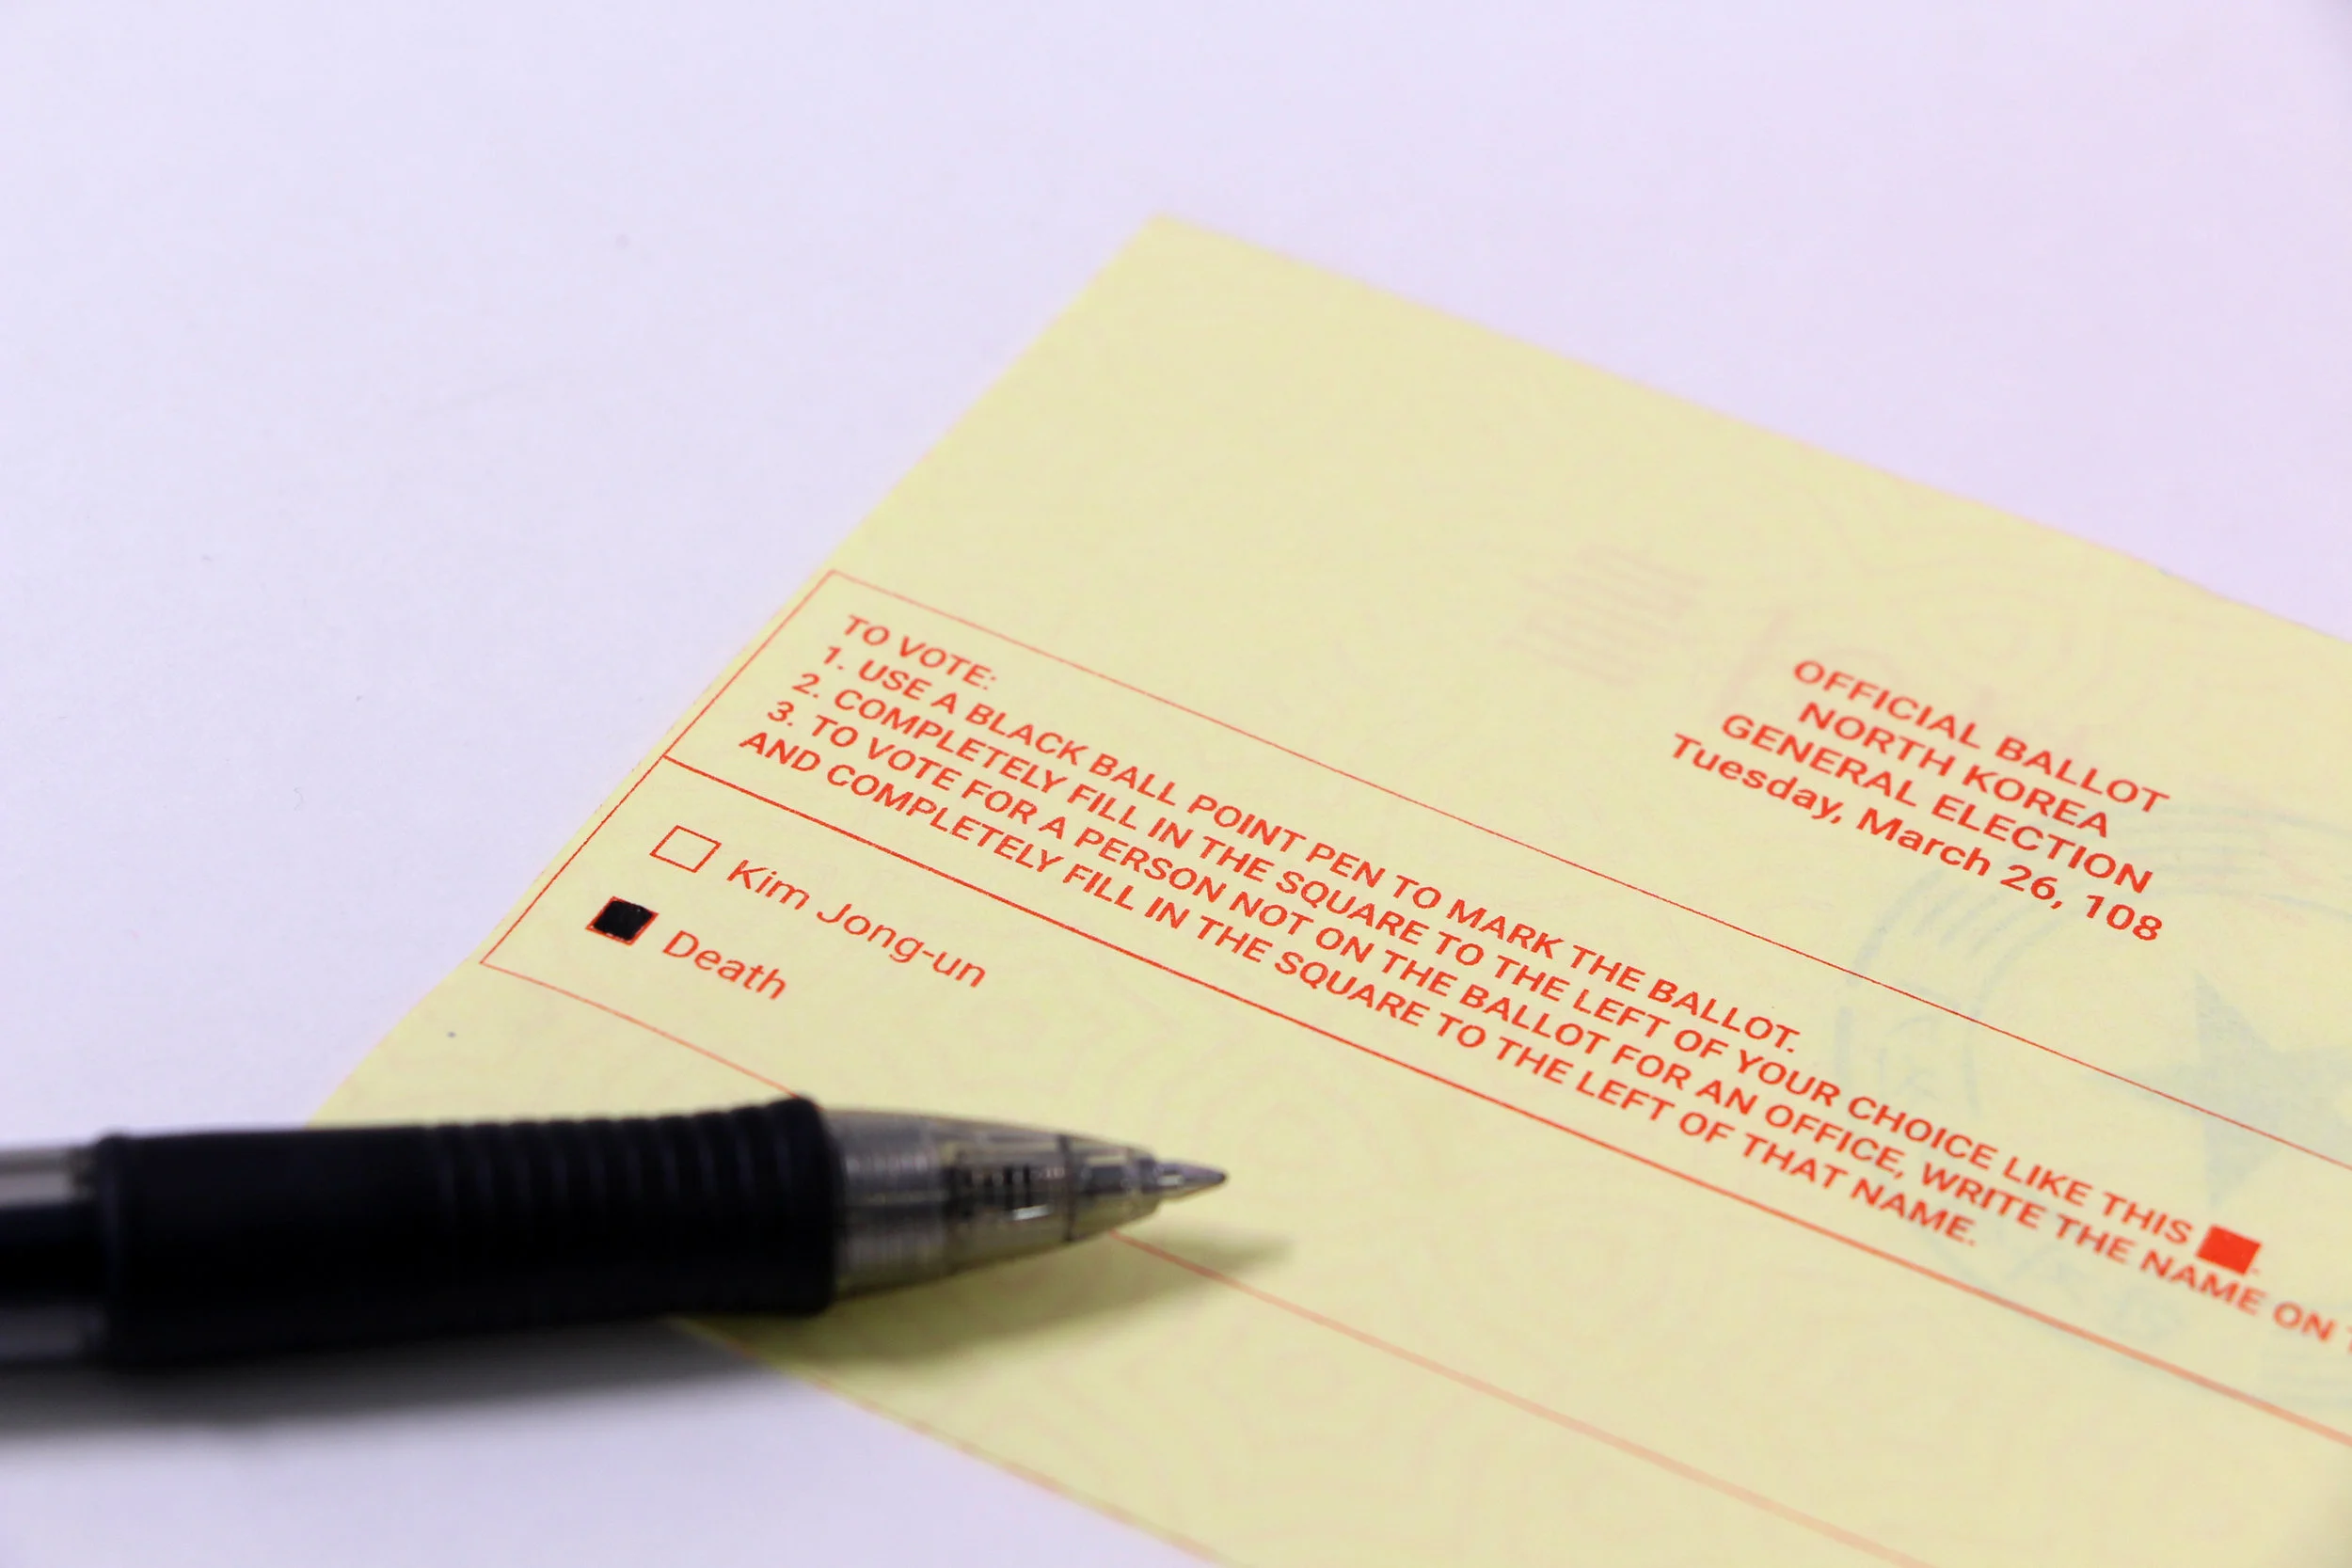 OFFICIAL BALLOT
NORTH KOREA
GENERAL ELECTION
Tuesday, March 26, 108
TO VOTE:
1. USE A BLACK BALL POINT PEN TO MARK THE BALLOT.
2. COMPLETELY FILL IN THE SQUARE TO THE LEFT OF YOUR CHOICE LIKE THIS ■.
3. TO VOTE FOR A PERSON NOT ON THE BALLOT FOR AN OFFICE, WRITE THE NAME ON
AND COMPLETELY FILL IN THE SQUARE TO THE LEFT OF THAT NAME.
Kim Jong-un
Death